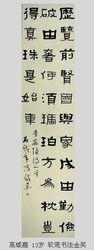 歷覽前賢國與家成由勤儉
破由奢何須琥珀方為枕豈
得真珠始是車
高威嘉 13岁 软笔书法金奖